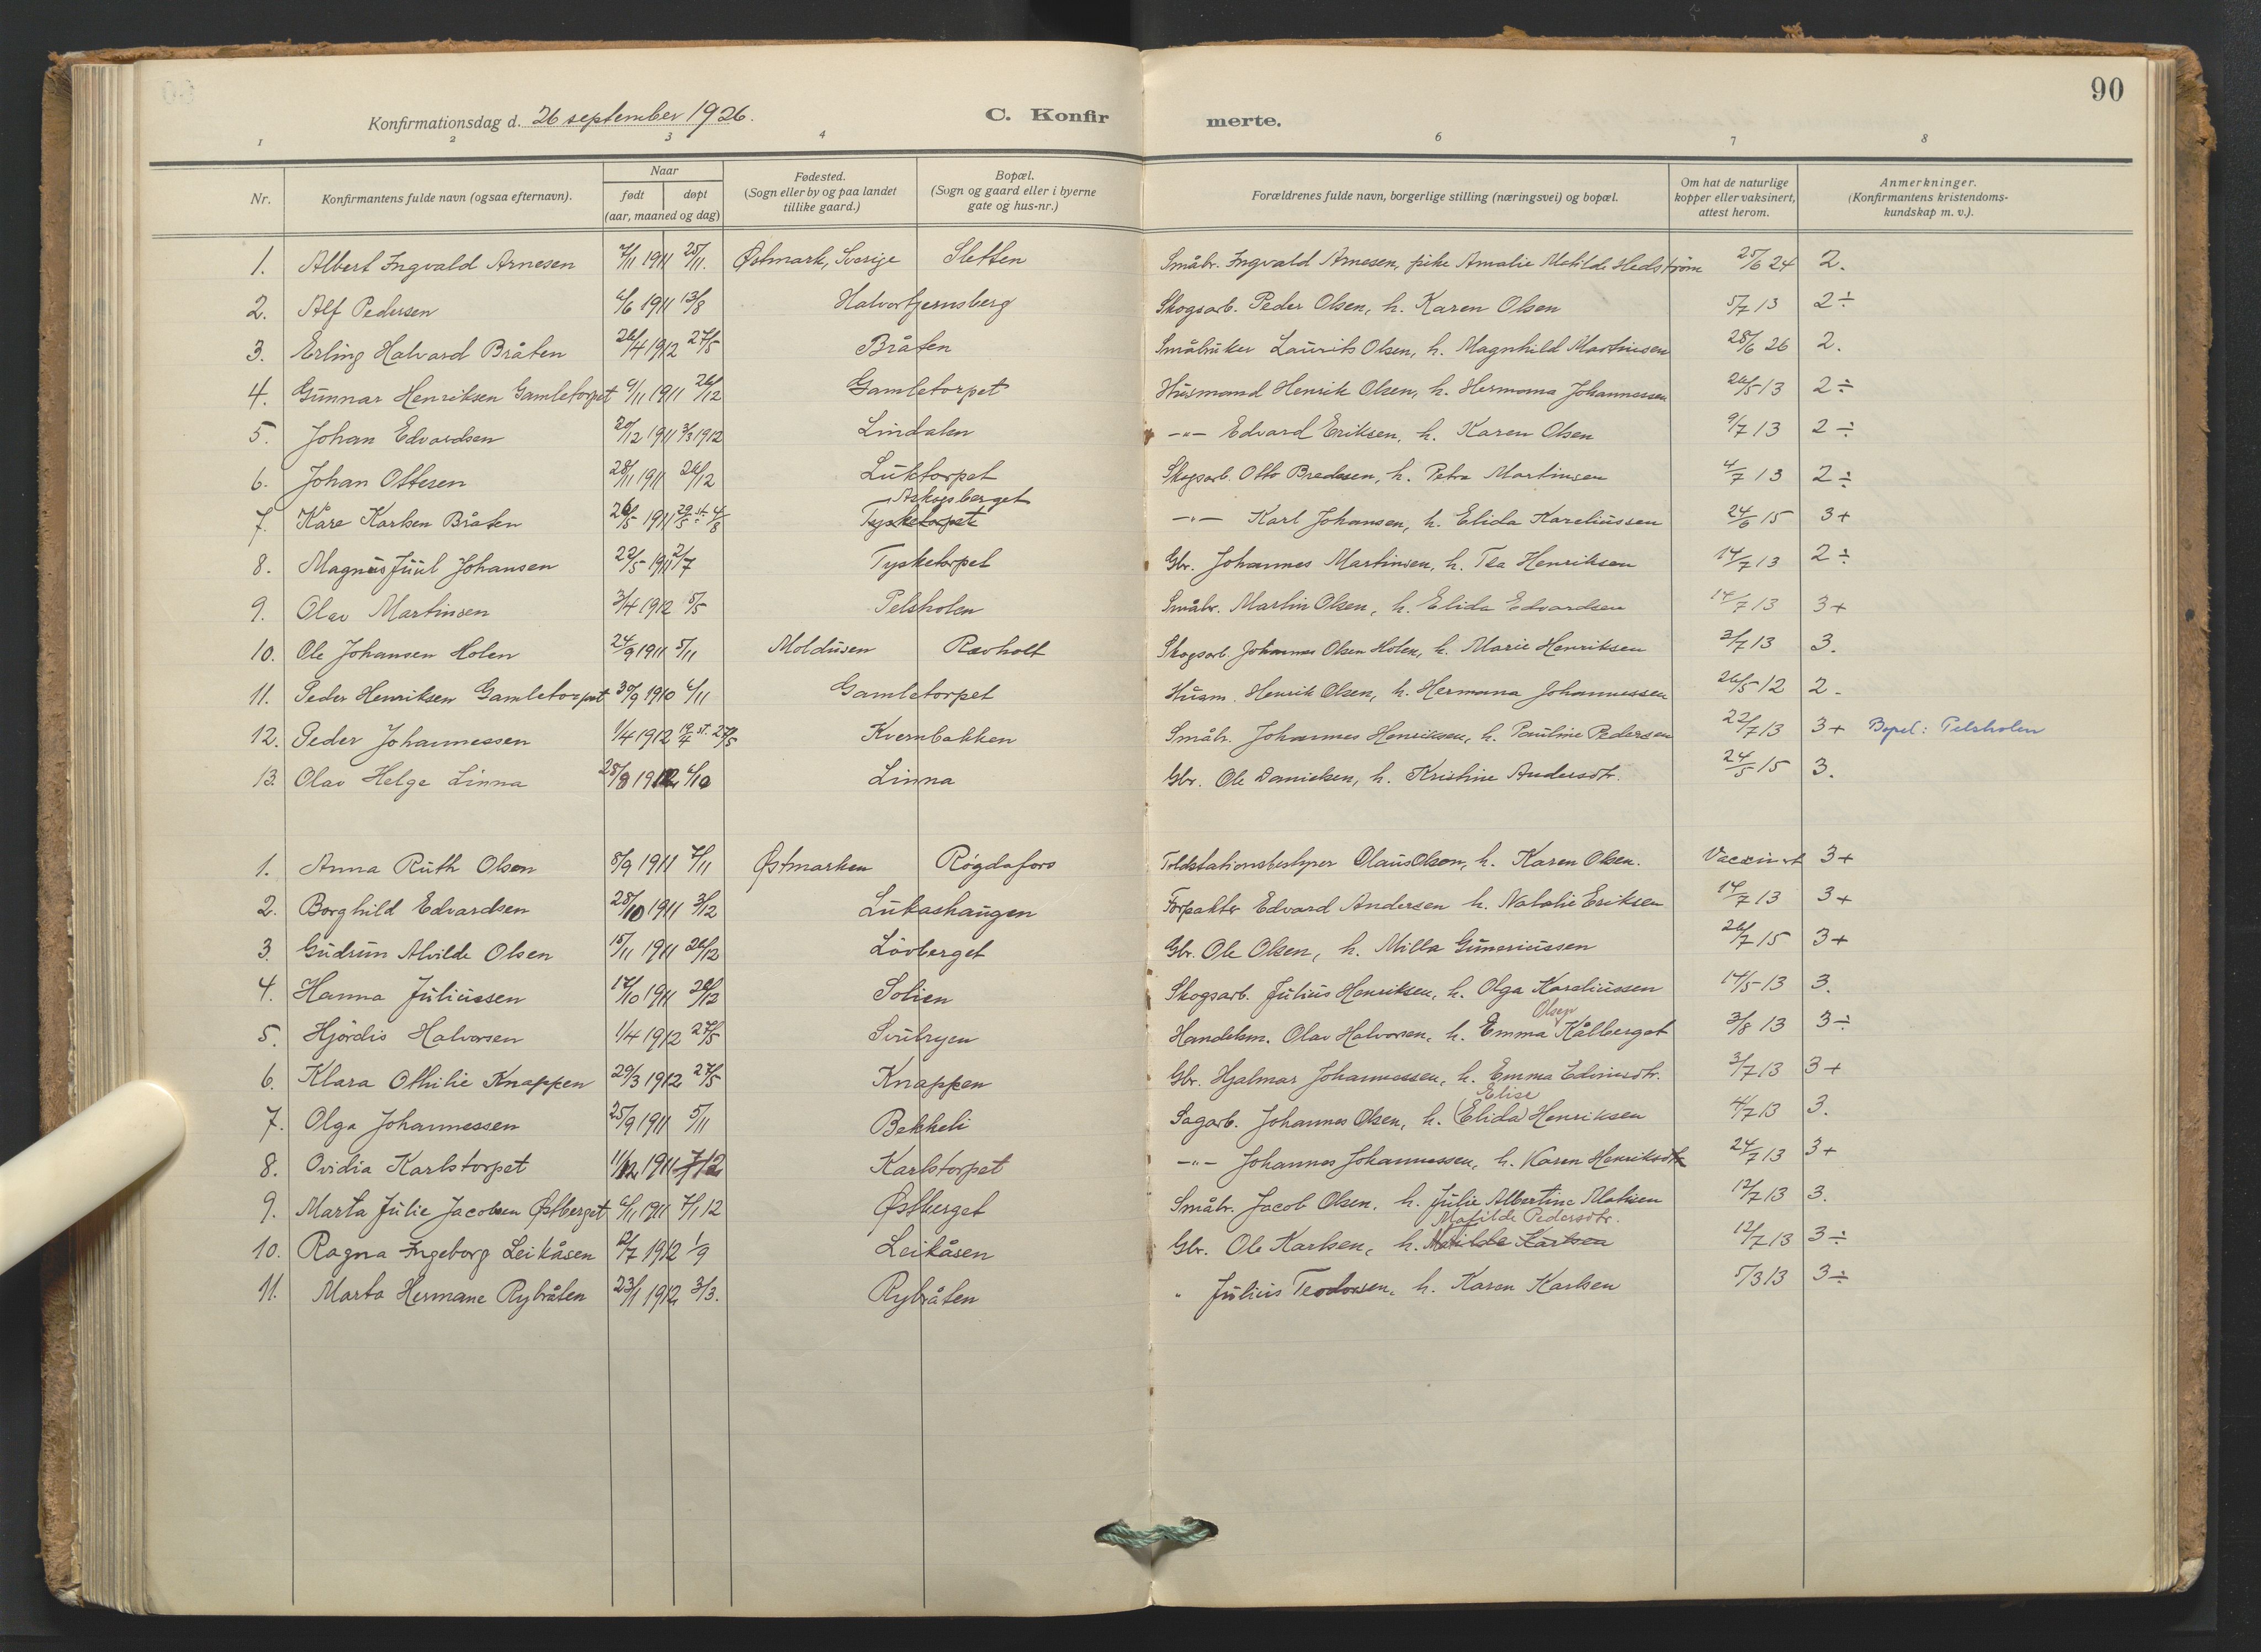 90
Konfirmationsdag d. 26 september 1926. C. Konfirmerte.
1 2 3 4 6 7 8
Nr. Konfirmantens fulde navn (ogsaa efternavn). Naar født døpt (aar, maaned og dag) Fødested. (Sogn eller by og paa landet tillike gaard.) Bopæl. (Sogn og gaard eller i byerne gate og hus-nr.) Forældrenes fulde navn, borgerlige stilling (næringsvei) og bopæl. Om hat de naturlige kopper eller vaksinert, attest herom. Anmerkninger. (Konfirmantens kristendoms-kundskap m. v.).
1. Albert Ingvald Arnesen 7/11 1911 25/11. Østmark, Sverige Sletten Småbr. Ingvald Arnesen, pike Amalie Matilde Hedström 25/6 24 2.
2. Alf Pedersen 6/6 1911 13/8 Halvortjernsberg Skogsarb. Peder Olsen, h. Karen Olsen 5/7 13 2÷
3. Erling Halvard Bråten 26/4 1912 27/5 Bråten Småbruker Laurits Olsen, h. Magnhild Martinsen 28/6 26 2.
4. Gunnar Henriksen Gamletorpet 9/11 1911 26/12 Gamletorpet Husmand Henrik Olsen, h. Hermana Johannessen 26/5 13 2÷
5. Johan Edvardsen 20/12 1911 3/3 1912 Lindalen -"- Edvard Eriksen, h. Karen Olsen 9/7 13 2÷
6. Johan Ottesen 28/11 1911 26/12 Luktorpet Skogsarb. Otto Bredesen, h. Petra Martinsen 4/7 13 2÷
Askogsberget
7. Kåre Karlsen Bråten 26/5 1911 29/5 st. 4/8 Tysketorpet -"- Karl Johansen, h. Elida Kareliussen 24/6 15 3+
8. Magnus Juul Johansen 22/5 1911 2/7 Tysketorpet Gbr. Johannes Martinsen, h. Tea Henriksen 14/7 13 2÷
9. Olav Martinsen 3/4 1912 5/5 Pelsholen Småbr. Martin Olsen, h. Elida Edvardsen 14/7 13 3+
10. Ole Johansen Holen 24/9 1911 5/11 Moldusen Ravholt Skogsarb. Johannes Olsen Holen, h. Marie Henriksen 3/7 13 3.
11. Peder Henriksen Gamletorpet 30/9 1910 6/11 Gamletorpet Husm. Henrik Olsen, h. Hermana Johannessen 26/5 12 2.
12. Peder Johannessen 1/4 1912 12/4 st. 27/5 Kvernbakken Småbr. Johannes Henriksen, h. Pauline Pedersen 22/7 13 3+ Bopel: Pelsholen
13. Olav Helge Linna 28/8 1912 6/10 Linna Gbr. Ole Danielsen, h. Kristine Andersdtr. 24/5 15 3.
1. Anna Ruth Olsen 8/9 1911 7/11 Østmarken Røgdafors Toldstationsbestyrer Olaus Olsen, h. Karen Olsen. Vaccinert 3+
2. Borghild Edvardsen 28/10 1911 3/12 Lukashaugen Forpakter Edvard Andersen h. Natalie Eriksen 14/7 13 3+
3. Gudrun Alvilde Olsen 15/11 1911 26/12 Lövberget Gbr. Ole Olsen, h. Milla Gunariussen 26/7 15 3+
4. Hanna Juliussen 17/10 1911 26/12 Solien Skogsarb. Julius Henriksen, h. Olga Kareliussen 14/5-13 3.
Olsen
5. Hjördis Halvorsen 1/4 1912 27/5 Svubryen Handelsm. Olav Halvorsen, h. Emma Kålberget 3/8 13 3÷
6. Klara Othilie Knappen 29/3 1912 27/5 Knappen Gbr. Hjalmar Johannessen, h. Emma Edinsdtr. 3/7 13 3+
Elise
7. Olga Johannessen 25/9 1911 5/11 Bekkeli Sagarb. Johannes Olsen, h. (Elida) Henriksen 4/7 13 3.
8. Ovidia Karlstorpet 11/12 1911 Karlstorpet -"- Johannes Johannessen, h. Karen Henriksdtr 24/7 13 3+
9. Marta Julie Jacobsen Østberget 6/11 1911 7/1 12 Østberget Småbr. Jacob Olsen, h. Julie Albertine Matisen 12/7 13 3.
Matilde Pedersdtr.
10. Ragna Ingeborg Leikåsen 12/7 1912 1/9 Leikåsen Gbr. Ole Karlsen, h. Matilde Karlsen 12/7 13 3÷
11. Marta Hermane Rybråten 23/1 1912 3/3. Rybråten " Julius Teodorsen, h. Karen Karlsen 5/3 13 3÷